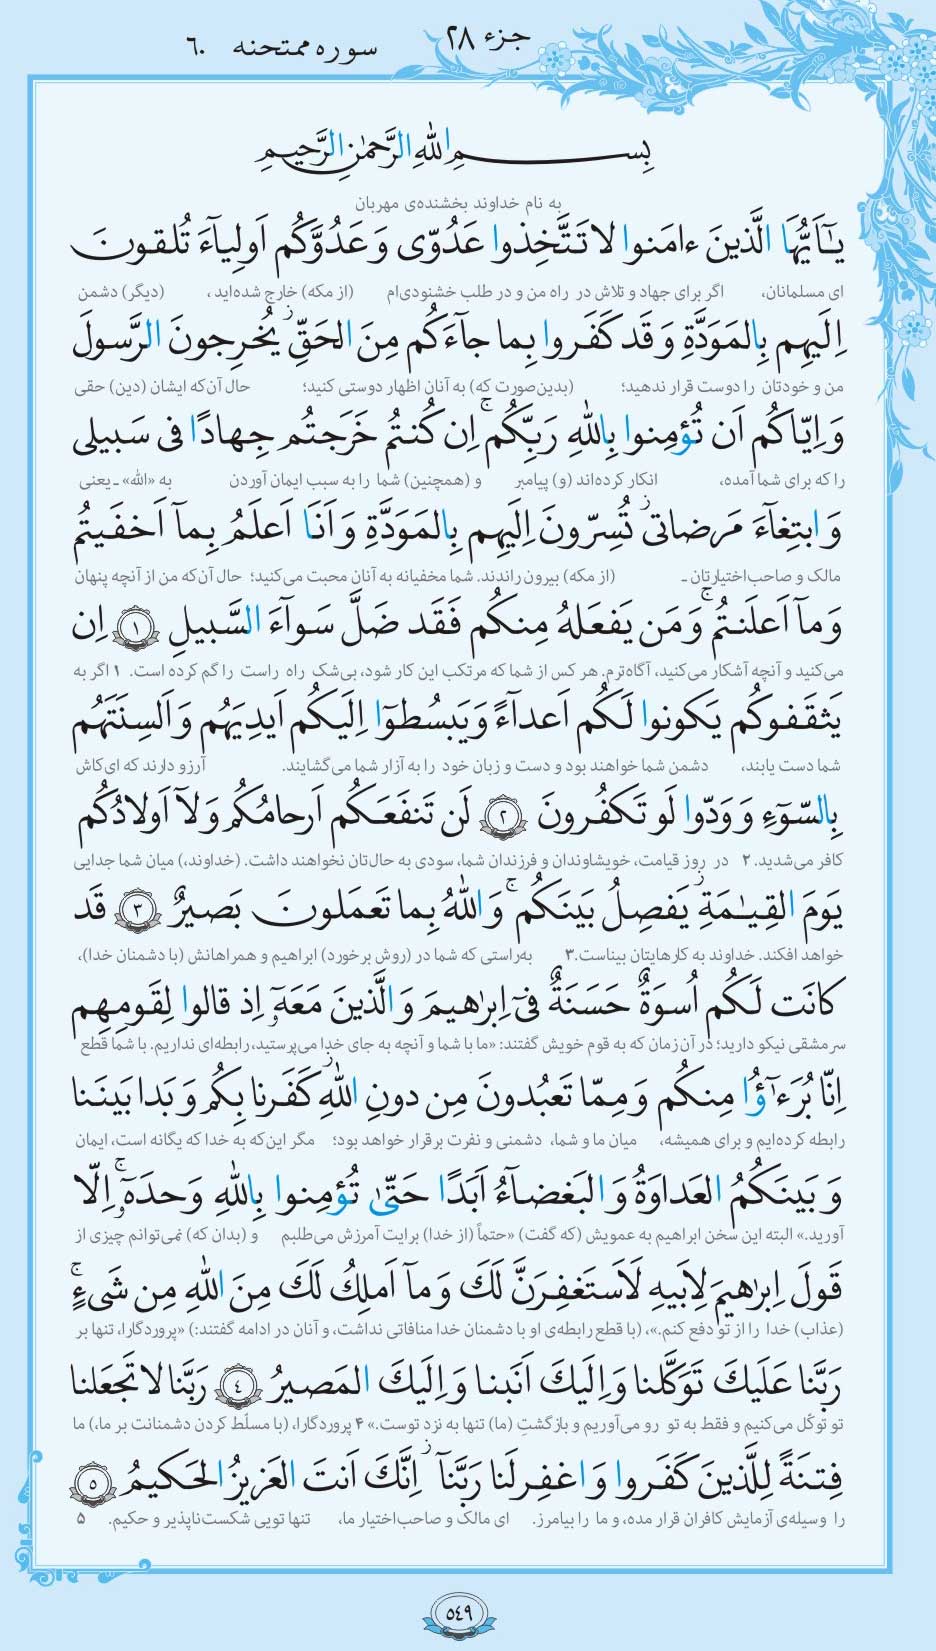 جزء ۲۸
سوره ممتحنه ۶۰
بِسمِ اللّٰهِ الرَّحمٰنِ الرَّحیمِ
به نام خداوند بخشنده‌ی مهربان
یـٰٓاَیُّهَا الَّذینَ ءامَنوا لا تَتَّخِذوا عَدُوّی وَ عَدُوَّکُم اَولِیآءَ تُلقونَ
ای مسلمانان، اگر برای جهاد و تلاش در راه من و در طلب خشنودی‌ام (از مکه) خارج شده‌اید، (دیگر) دشمن
اِلَیهِم بِالمَوَدَّةِ وَ قَد کَفَروا بِما جآءَکُم مِنَ الحَقِّ ۫ یُخرِجونَ الرَّسولَ
من و خودتان را دوست قرار ندهید؛ (بدین‌صورت که) به آنان اظهار دوستی کنید؛ حال آن‌که ایشان (دین) حقی
وَ اِیّاکُم اَن تُؤمِنوا بِاللّٰهِ رَبِّکُم ۚ اِن کُنتُم خَرَجتُم جِهادًا فی سَبیلی
را که برای شما آمده، انکار کرده‌اند (و) پیامبر و (همچنین) شما را به سبب ایمان آوردن به «الله» ـ یعنی
وَ ابتِغآءَ مَرضاتی ز تُسِرّونَ اِلَیهِم بِالمَوَدَّةِ وَ اَنَا اَعلَمُ بِمآ اَخفَیتُم
مالک و صاحب‌اختیارتان ـ (از مکه) بیرون راندند. شما مخفیانه به آنان محبت می‌کنید؛ حال آن‌که من از آنچه پنهان
وَ مآ اَعلَنتُم ۚ وَ مَن یَفعَلهُ مِنکُم فَقَد ضَلَّ سَوآءَ السَّبیلِ ﴿۱﴾ اِن
می‌کنید و آنچه آشکار می‌کنید، آگاه‌ترم. هر کس از شما که مرتکب این کار شود، بی‌شک راه راست را گم کرده است. ۱ اگر به
یَثقَفوکُم یَکونوا لَکُم اَعدآءً وَ یَبسُطوٓا اِلَیکُم اَیدِیَهُم وَ اَلسِنَتَهُم
شما دست یابند، دشمن شما خواهند بود و دست و زبان خود را به آزار شما می‌گشایند. آرزو دارند که ای‌کاش
بِالسّوٓءِ وَ وَدّوا لَو تَکفُرونَ ﴿۲﴾ لَن تَنفَعَکُم اَرحامُکُم وَ لآ اَولادُکُم
کافر می‌شدید. ۲ در روز قیامت، خویشاوندان و فرزندان شما، سودی به حال‌تان نخواهند داشت. (خداوند،) میان شما جدایی
یَومَ القِیـٰمَةِ ز یَفصِلُ بَینَکُم ۚ وَ اللّٰهُ بِما تَعمَلونَ بَصیرٌ ﴿۳﴾ قَد
خواهد افکند. خداوند به کارهایتان بیناست.۳ به‌راستی که شما در (روش برخورد) ابراهیم و همراهانش (با دشمنان خدا)،
کانَت لَکُم اُسوَةٌ حَسَنَةٌ فیٓ اِبرٰهیمَ وَ الَّذینَ مَعَهٓ اِذ قالوا لِقَومِهِم
سرمشقی نیکو دارید؛ در آن زمان که به قوم خویش گفتند: «ما با شما و آنچه به جای خدا می‌پرستید، رابطه‌ای نداریم. با شما قطع
اِنّا بُرَءٰٓؤُا مِنکُم وَ مِمّا تَعبُدونَ مِن دونِ اللّٰهِ ز کَفَرنا بِکُم وَ بَدا بَینَنا
رابطه کرده‌ایم و برای همیشه، میان ما و شما، دشمنی و نفرت برقرار خواهد بود؛ مگر این‌که به خدا که یگانه است، ایمان
وَ بَینَکُمُ العَداوَةُ وَ البَغضآءُ اَبَدًا حَتّیٰ تُؤمِنوا بِاللّٰهِ وَحدَهٓ ۚ اِلّا
آورید.» البته این سخن ابراهیم به عمویش (که گفت) «حتماً (از خدا) برایت آمرزش می‌طلبم و (بدان که) نمی‌توانم چیزی از
قَولَ اِبرٰهیمَ لِاَبیهِ لَاَستَغفِرَنَّ لَکَ وَ مآ اَملِکُ لَکَ مِنَ اللّٰهِ مِن شَیءٍ ۚ
(عذاب) خدا را از تو دفع کنم.»، (با قطع رابطه‌ی او با دشمنان خدا منافاتی نداشت، و آنان در ادامه گفتند:) «پروردگارا، تنها بر
رَبَّنا عَلَیکَ تَوَکَّلنا وَ اِلَیکَ اَنَبنا وَ اِلَیکَ المَصیرُ ﴿۴﴾ رَبَّنا لا تَجعَلنا
تو توکّل می‌کنیم و فقط به تو رو می‌آوریم و بازگشتِ (ما) تنها به نزد توست.» ۴ پروردگارا، (با مسلّط کردن دشمنانت بر ما،) ما
فِتنَةً لِلَّذینَ کَفَروا وَ اغفِر لَنا رَبَّنآ ز اِنَّکَ اَنتَ العَزیزُ الحَکیمُ ﴿۵﴾
را وسیله‌ی آزمایش کافران قرار مده، و ما را بیامرز. ای مالک و صاحب‌اختیار ما، تنها تویی شکست‌ناپذیر و حکیم. ۵
۵۴۹